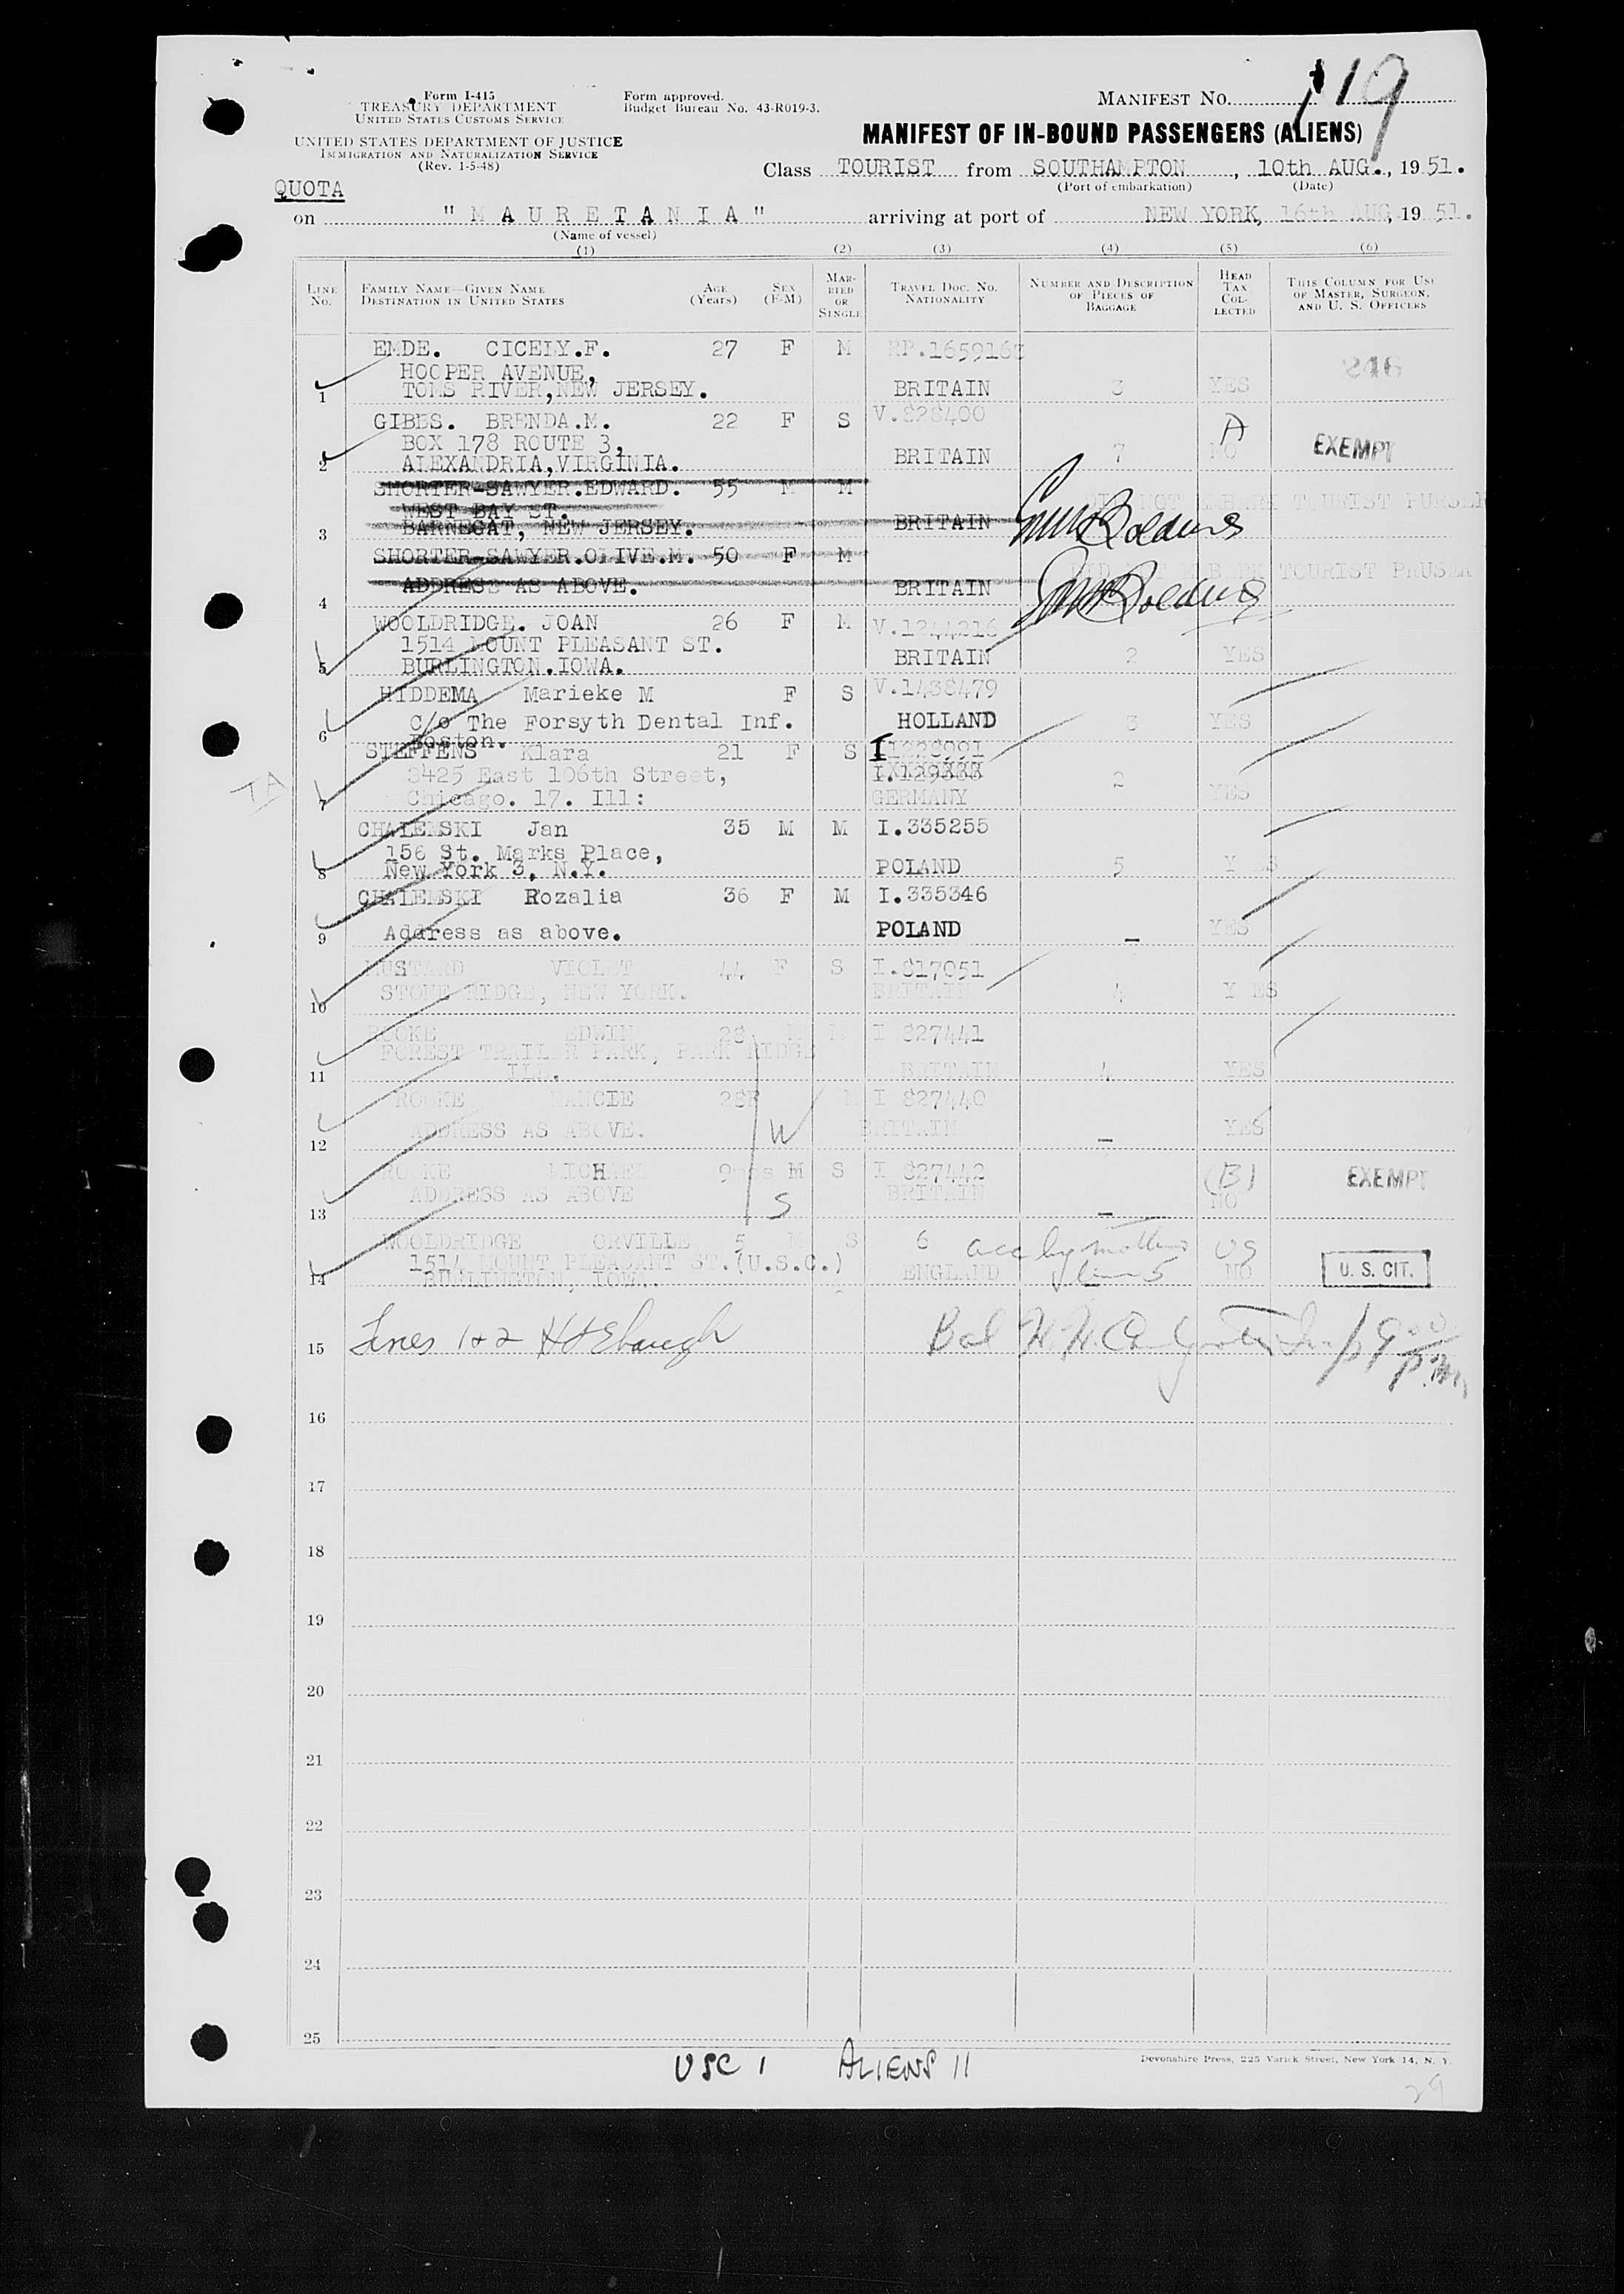 Form I-415
TREASURY DEPARTMENT
UNITED STATES CUSTOMS SERVICE
UNITED STATES DEPARTMENT OF JUSTICE
IMMIGRATION AND NATURALIZATION SERVICE
(Rev. 1-5-48)
Form approved.
Budget Bureau No. 43-R019-3.
MANIFEST NO. 119
MANIFEST OF IN-BOUND PASSENGERS (ALIENS)
Class TOURIST from SOUTHAMPTON, 10th AUG., 1951.
(Port of embarkation) (Date)
QUOTA
on "MAURETANIA" arriving at port of NEW YORK, 16th AUG, 1951.
(Name of vessel)
(1) (2) (3) (4) (5) (6)
LINE No. FAMILY NAME—GIVEN NAME DESTINATION IN UNITED STATES AGE (Years) SEX (F-M) MARRIED OR SINGLE TRAVEL DOC. NO. NATIONALITY NUMBER AND DESCRIPTION OF PIECES OF BAGGAGE HEAD TAX COLLECTED THIS COLUMN FOR USE OF MASTER, SURGEON, AND U. S. OFFICERS
EMDE. CICELY.F. 27 F M RP.165916
HOOPER AVENUE, 246
1 TOMS RIVER,NEW JERSEY. BRITAIN 3 YES
GIBBS. BRENDA.M. 22 F S V.828400
BOX 178 ROUTE 3, A
2 ALEXANDRIA,VIRGINIA. BRITAIN 7 NO EXEMPT
SHORTER-SAWYER.EDWARD. 55 M M
WEST BAY ST. DID NOT EMBARK TOURIST PURSER
3 BARNEGAT, NEW JERSEY. BRITAIN
SHORTER-SAWYER.OLIVE.M. 50 F M
DID NOT EMBARK TOURIST PRUSER
4 ADDRESS AS ABOVE. BRITAIN
WOOLDRIDGE. JOAN 26 F M V.1244216
1514 MOUNT PLEASANT ST.
5 BURLINGTON.IOWA. BRITAIN 2 YES
HIDDEMA Marieke M F S V.1438479
6 C/o The Forsyth Dental Inf. HOLLAND 3 YES
Boston.
STEFFENS Klara 21 F S I 1228991
TA 3425 East 106th Street, I.129333 2
7 Chicago. 17. Ill: GERMANY YES
CHALEMSKI Jan 35 M M I.335255
156 St. Marks Place,
8 New York 3, N.Y. POLAND 5 Y S
CHALEMSKI Rozalia 36 F M I.335346
9 Address as above. POLAND _ YES
MUSTARD VIOLET 44 F S I.817051
10 STONE RIDGE, NEW YORK. BRITAIN 4 Y ES
ROOKE EDWIN 28 M M I 827441
FOREST TRAILER PARK, PARK RIDGE
11 ILL. BRITAIN 4 YES
ROOKE NANCIE 28F M I 827440
12 ADDRESS AS ABOVE. W BRITAIN _ YES
ROOKE MICHAEL 9mos M S I 827442 (B) EXEMPT
13 ADDRESS AS ABOVE S BRITAIN _ NO
WOOLDRIDGE ORVILLE 5 M S 6 acc by mother US
1514 MOUNT PLEASANT ST.(U.S.C.) line 5
14 BURLINGTON, IOWA. ENGLAND NO U. S. CIT.
15 Lines 1 & 2 Bal
16
17
18
19
20
21
22
23
24
25
USC 1 ALIENS 11
Devonshire Press, 225 Varick Street, New York 14, N. Y.
29